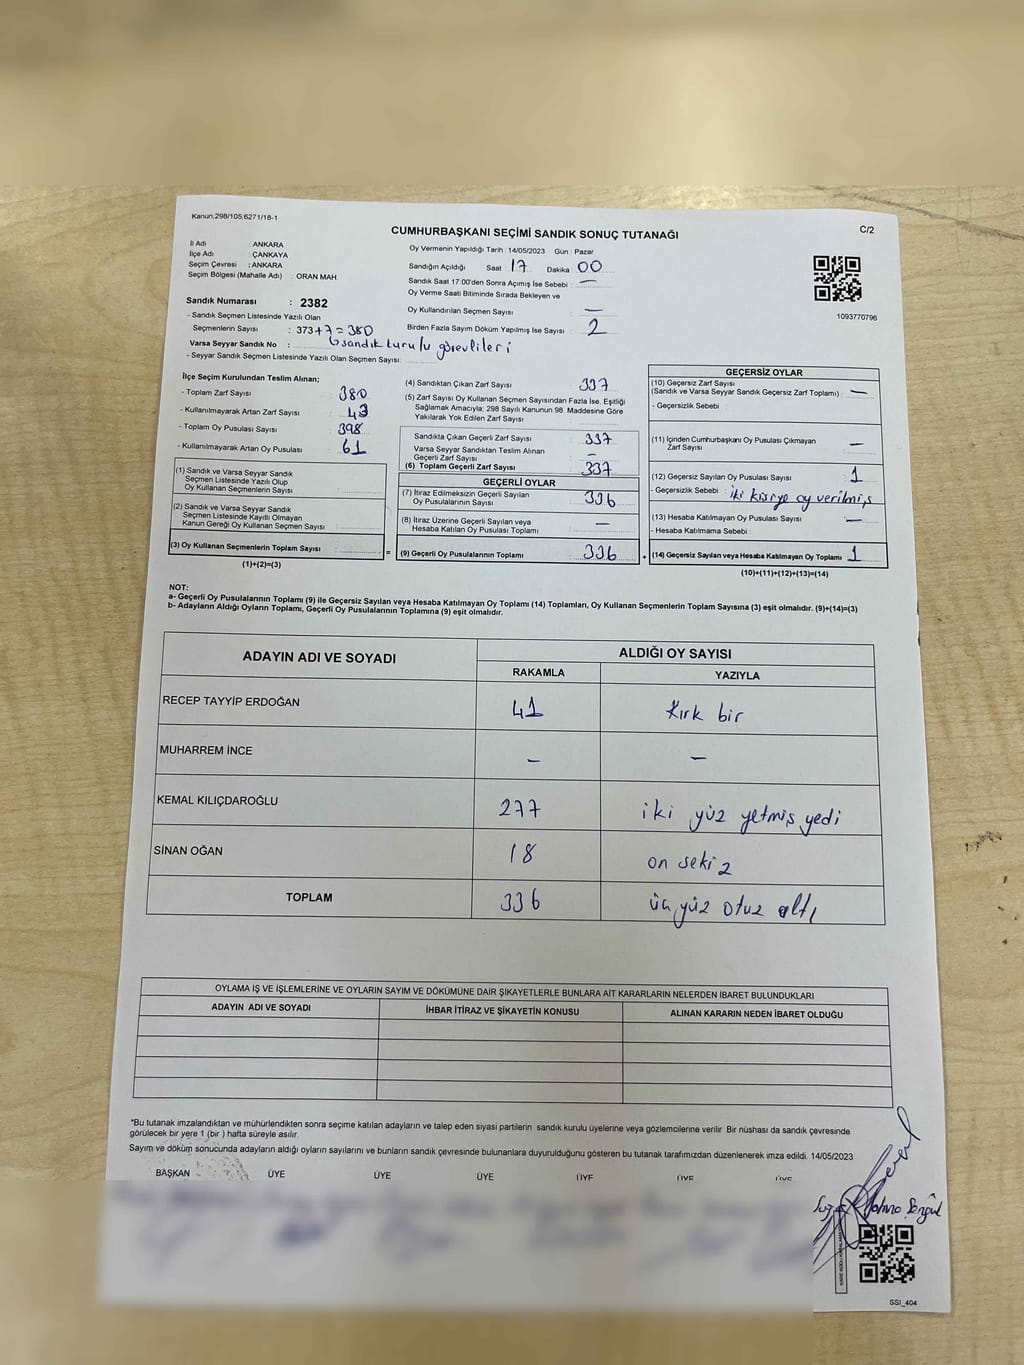 Kanun,298/105,6271/18-1
CUMHURBAŞKANI SEÇİMİ SANDIK SONUÇ TUTANAĞI
C/2
İl Adı : ANKARA
İlçe Adı : ÇANKAYA
Seçim Çevresi : ANKARA
Seçim Bölgesi (Mahalle Adı) : ORAN MAH.
Sandık Numarası : 2382
- Sandık Seçmen Listesinde Yazılı Olan
Seçmenlerin Sayısı : 373+7=380
Varsa Seyyar Sandık No : sandık kurulu görevlileri
- Seyyar Sandık Seçmen Listesinde Yazılı Olan Seçmen Sayısı:
Oy Vermenin Yapıldığı Tarih : 14/05/2023 Gün : Pazar
Sandığın Açıldığı Saat : 17 Dakika : 00
Sandık Saat 17:00'den Sonra Açımış İse Sebebi : —
Oy Verme Saati Bitiminde Sırada Bekleyen ve
Oy Kullandırılan Seçmen Sayısı : —
Birden Fazla Sayım Döküm Yapılmış İse Sayısı : 2
1093770796
İlçe Seçim Kurulundan Teslim Alınan;
- Toplam Zarf Sayısı : 380
- Kullanılmayarak Artan Zarf Sayısı : 43
- Toplam Oy Pusulası Sayısı : 398
- Kullanılmayarak Artan Oy Pusulası : 61
(1) Sandık ve Varsa Seyyar Sandık
Seçmen Listesinde Yazılı Olup
Oy Kullanan Seçmenlerin Sayısı :
(2) Sandık ve Varsa Seyyar Sandık
Seçmen Listesinde Kayıtlı Olmayan
Kanun Gereği Oy Kullanan Seçmen Sayısı :
(3) Oy Kullanan Seçmenlerin Toplam Sayısı :
(1)+(2)=(3)
(4) Sandıktan Çıkan Zarf Sayısı : 337
(5) Zarf Sayısı Oy Kullanan Seçmen Sayısından Fazla İse, Eşitliği
Sağlamak Amacıyla; 298 Sayılı Kanunun 98. Maddesine Göre
Yakılarak Yok Edilen Zarf Sayısı :
Sandıkta Çıkan Geçerli Zarf Sayısı : 337
Varsa Seyyar Sandıktan Teslim Alınan
Geçerli Zarf Sayısı : —
(6) Toplam Geçerli Zarf Sayısı : 337
GEÇERLİ OYLAR
(7) İtiraz Edilmeksizin Geçerli Sayılan
Oy Pusulalarının Sayısı : 336
(8) İtiraz Üzerine Geçerli Sayılan veya
Hesaba Katılan Oy Pusulası Toplamı : —
= (9) Geçerli Oy Pusulalarının Toplamı : 336
GEÇERSİZ OYLAR
(10) Geçersiz Zarf Sayısı
(Sandık ve Varsa Seyyar Sandık Geçersiz Zarf Toplamı) : —
- Geçersizlik Sebebi :
(11) İçinden Cumhurbaşkanı Oy Pusulası Çıkmayan
Zarf Sayısı : —
(12) Geçersiz Sayılan Oy Pusulası Sayısı : 1
- Geçersizlik Sebebi : iki kişiye oy verilmiş
(13) Hesaba Katılmayan Oy Pusulası Sayısı : —
- Hesaba Katılmama Sebebi :
+ (14) Geçersiz Sayılan veya Hesaba Katılmayan Oy Toplamı : 1
(10)+(11)+(12)+(13)=(14)
NOT:
a- Geçerli Oy Pusulalarının Toplamı (9) ile Geçersiz Sayılan veya Hesaba Katılmayan Oy Toplamı (14) Toplamları, Oy Kullanan Seçmenlerin Toplam Sayısına (3) eşit olmalıdır. (9)+(14)=(3)
b- Adayların Aldığı Oyların Toplamı, Geçerli Oy Pusulalarının Toplamına (9) eşit olmalıdır.
ADAYIN ADI VE SOYADI ALDIĞI OY SAYISI
RAKAMLA YAZIYLA
RECEP TAYYİP ERDOĞAN 41 Kırk bir
MUHARREM İNCE — —
KEMAL KILIÇDAROĞLU 277 iki yüz yetmiş yedi
SİNAN OĞAN 18 on sekiz
TOPLAM 336 üç yüz otuz altı
OYLAMA İŞ VE İŞLEMLERİNE VE OYLARIN SAYIM VE DÖKÜMÜNE DAİR ŞİKAYETLERLE BUNLARA AİT KARARLARIN NELERDEN İBARET BULUNDUKLARI
ADAYIN ADI VE SOYADI İHBAR İTİRAZ VE ŞİKAYETİN KONUSU ALINAN KARARIN NEDEN İBARET OLDUĞU
*Bu tutanak imzalandıktan ve mühürlendikten sonra seçime katılan adayların ve talep eden siyasi partilerin sandık kurulu üyelerine veya gözlemcilerine verilir. Bir nüshası da sandık çevresinde
görülecek bir yere 1 (bir) hafta süreyle asılır.
Sayım ve döküm sonucunda adayların aldığı oyların sayılarını ve bunların sandık çevresinde bulunanlara duyurulduğunu gösteren bu tutanak tarafımızdan düzenlenerek imza edildi. 14/05/2023
BAŞKAN ÜYE ÜYE ÜYE ÜYE ÜYE ÜYE
SSI_404